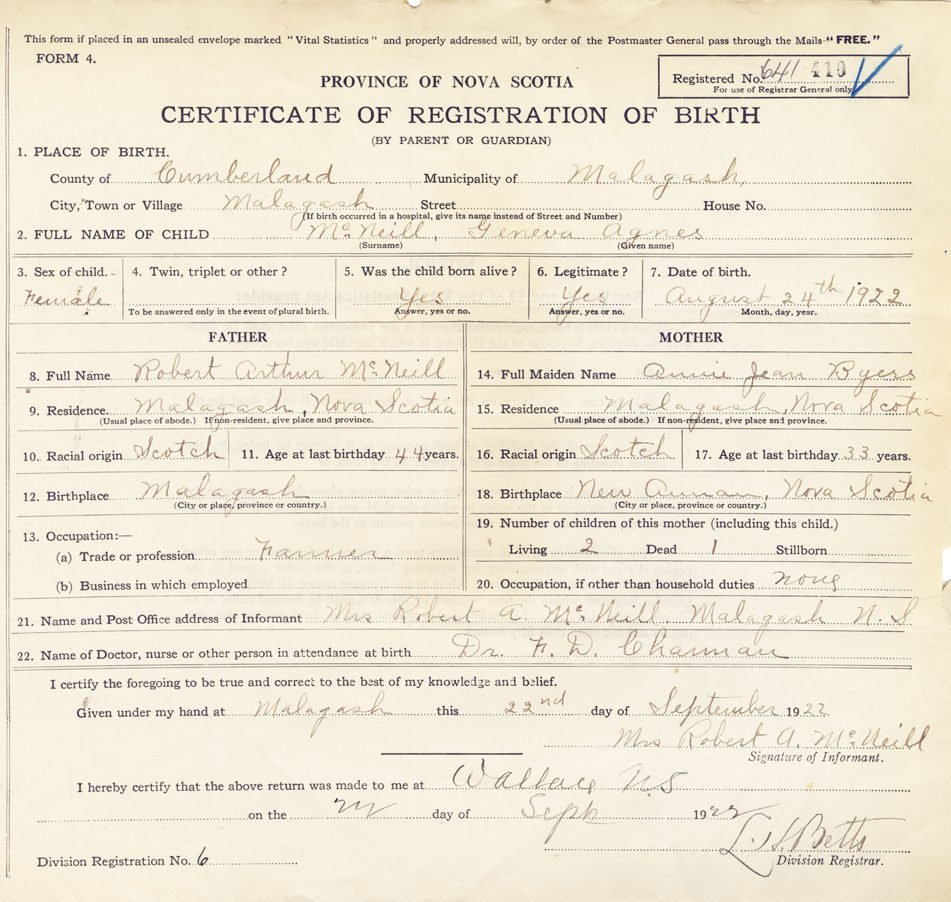 This form if placed in an unsealed envelope marked "Vital Statistics" and properly addressed will, by order of the Postmaster General pass through the Mails "FREE."
FORM 4.
Registered No. 641 410
For use of Registrar General only
PROVINCE OF NOVA SCOTIA
CERTIFICATE OF REGISTRATION OF BIRTH
(BY PARENT OR GUARDIAN)
1. PLACE OF BIRTH.
County of Cumberland Municipality of Malagash,
City, Town or Village Malagash Street House No.
(If birth occurred in a hospital, give its name instead of Street and Number)
2. FULL NAME OF CHILD McNeill, Geneva Agnes
(Surname) (Given name)
3. Sex of child. Female
4. Twin, triplet or other?
To be answered only in the event of plural birth.
5. Was the child born alive? Yes
Answer, yes or no.
6. Legitimate? Yes
Answer, yes or no.
7. Date of birth. August 24th 1922
Month, day, year.
FATHER
8. Full Name Robert Arthur McNeill
9. Residence. Malagash, Nova Scotia
(Usual place of abode.) If non-resident, give place and province.
10. Racial origin Scotch 11. Age at last birthday 44 years.
12. Birthplace Malagash
(City or place, province or country.)
13. Occupation:—
(a) Trade or profession Farmer
(b) Business in which employed
MOTHER
14. Full Maiden Name Annie Jean Byers
15. Residence Malagash, Nova Scotia
(Usual place of abode.) If non-resident, give place and province.
16. Racial origin Scotch 17. Age at last birthday 33 years.
18. Birthplace New Annan, Nova Scotia
(City or place, province or country.)
19. Number of children of this mother (including this child.)
Living 2 Dead 1 Stillborn
20. Occupation, if other than household duties none
21. Name and Post Office address of Informant Mrs Robert A. McNeill. Malagash N. S
22. Name of Doctor, nurse or other person in attendance at birth Dr. F. D. Charman
I certify the foregoing to be true and correct to the best of my knowledge and belief.
Given under my hand at Malagash this 22nd day of September 1922
Mrs Robert A. McNeill
Signature of Informant.
I hereby certify that the above return was made to me at Wallace N.S
on the day of Sept 1922
Betts
Division Registrar.
Division Registration No. 6